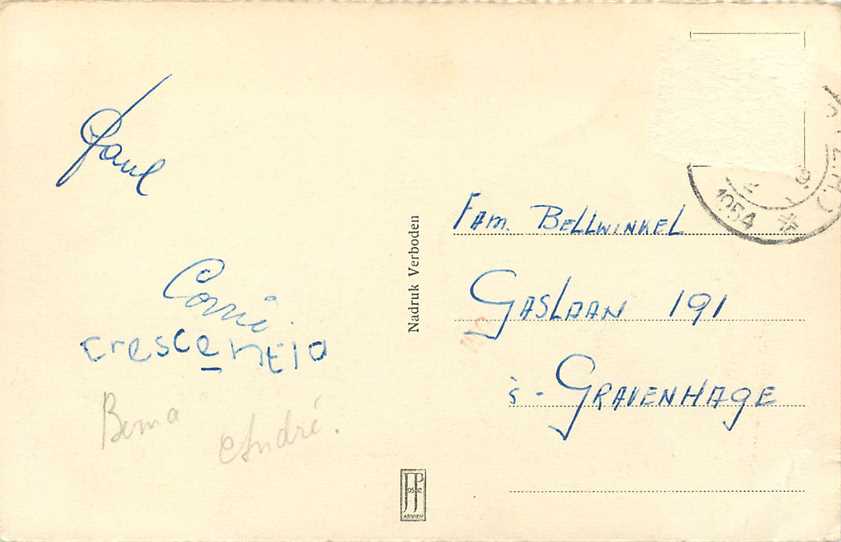 Paul
Corrie.
crescentia
Bema
André.
Nadruk Verboden
Fam. BELLWINKEL
GASLAAN 191
's-GRAVENHAGE
1954
JP